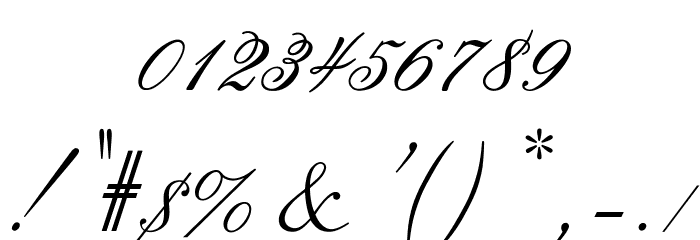 0123456789
! " # $ % & ' ( ) * , - . /